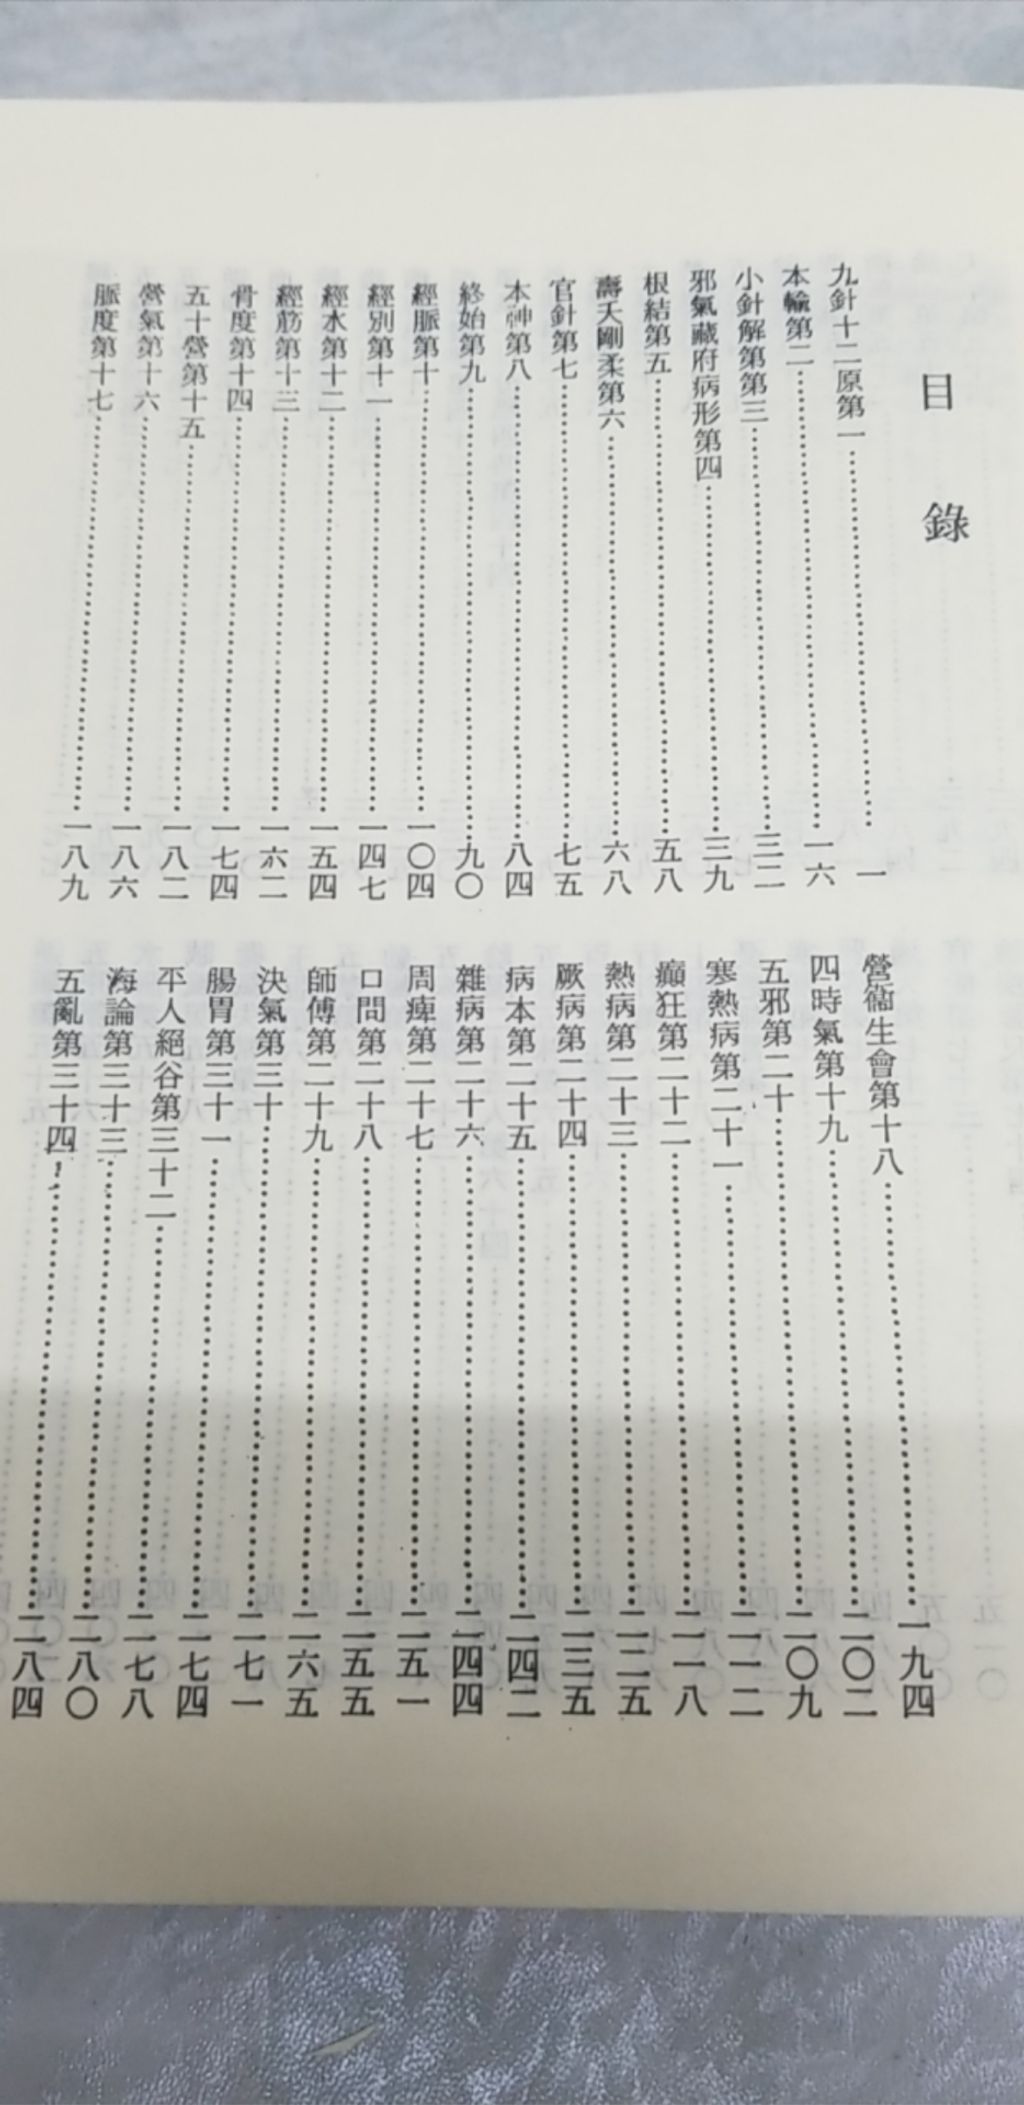 目錄
九針十二原第一……一
本輸第二……一六
小針解第第三……三二
邪氣藏府病形第四……三九
根結第五……五八
壽夭剛柔第六……六八
官針第七……七五
本神第八……八四
終始第九……九〇
經脈第十……一〇四
經別第十一……一四七
經水第十二……一五四
經筋第十三……一六二
骨度第十四……一七四
五十營第十五……一八二
營氣第十六……一八六
脈度第十七……一八九
營衞生會第十八……一九四
四時氣第十九……二〇二
五邪第二十……二〇九
寒熱病第二十一……二一二
癲狂第二十二……二一八
熱病第二十三……二二五
厥病第二十四……二三五
病本第二十五……二四二
雜病第二十六……二四四
周痺第二十七……二五一
口問第二十八……二五五
師傅第二十九……二六五
決氣第三十……二七一
腸胃第三十一……二七四
平人絕谷第三十二……二七八
海論第三十三……二八〇
五亂第三十四……二八四